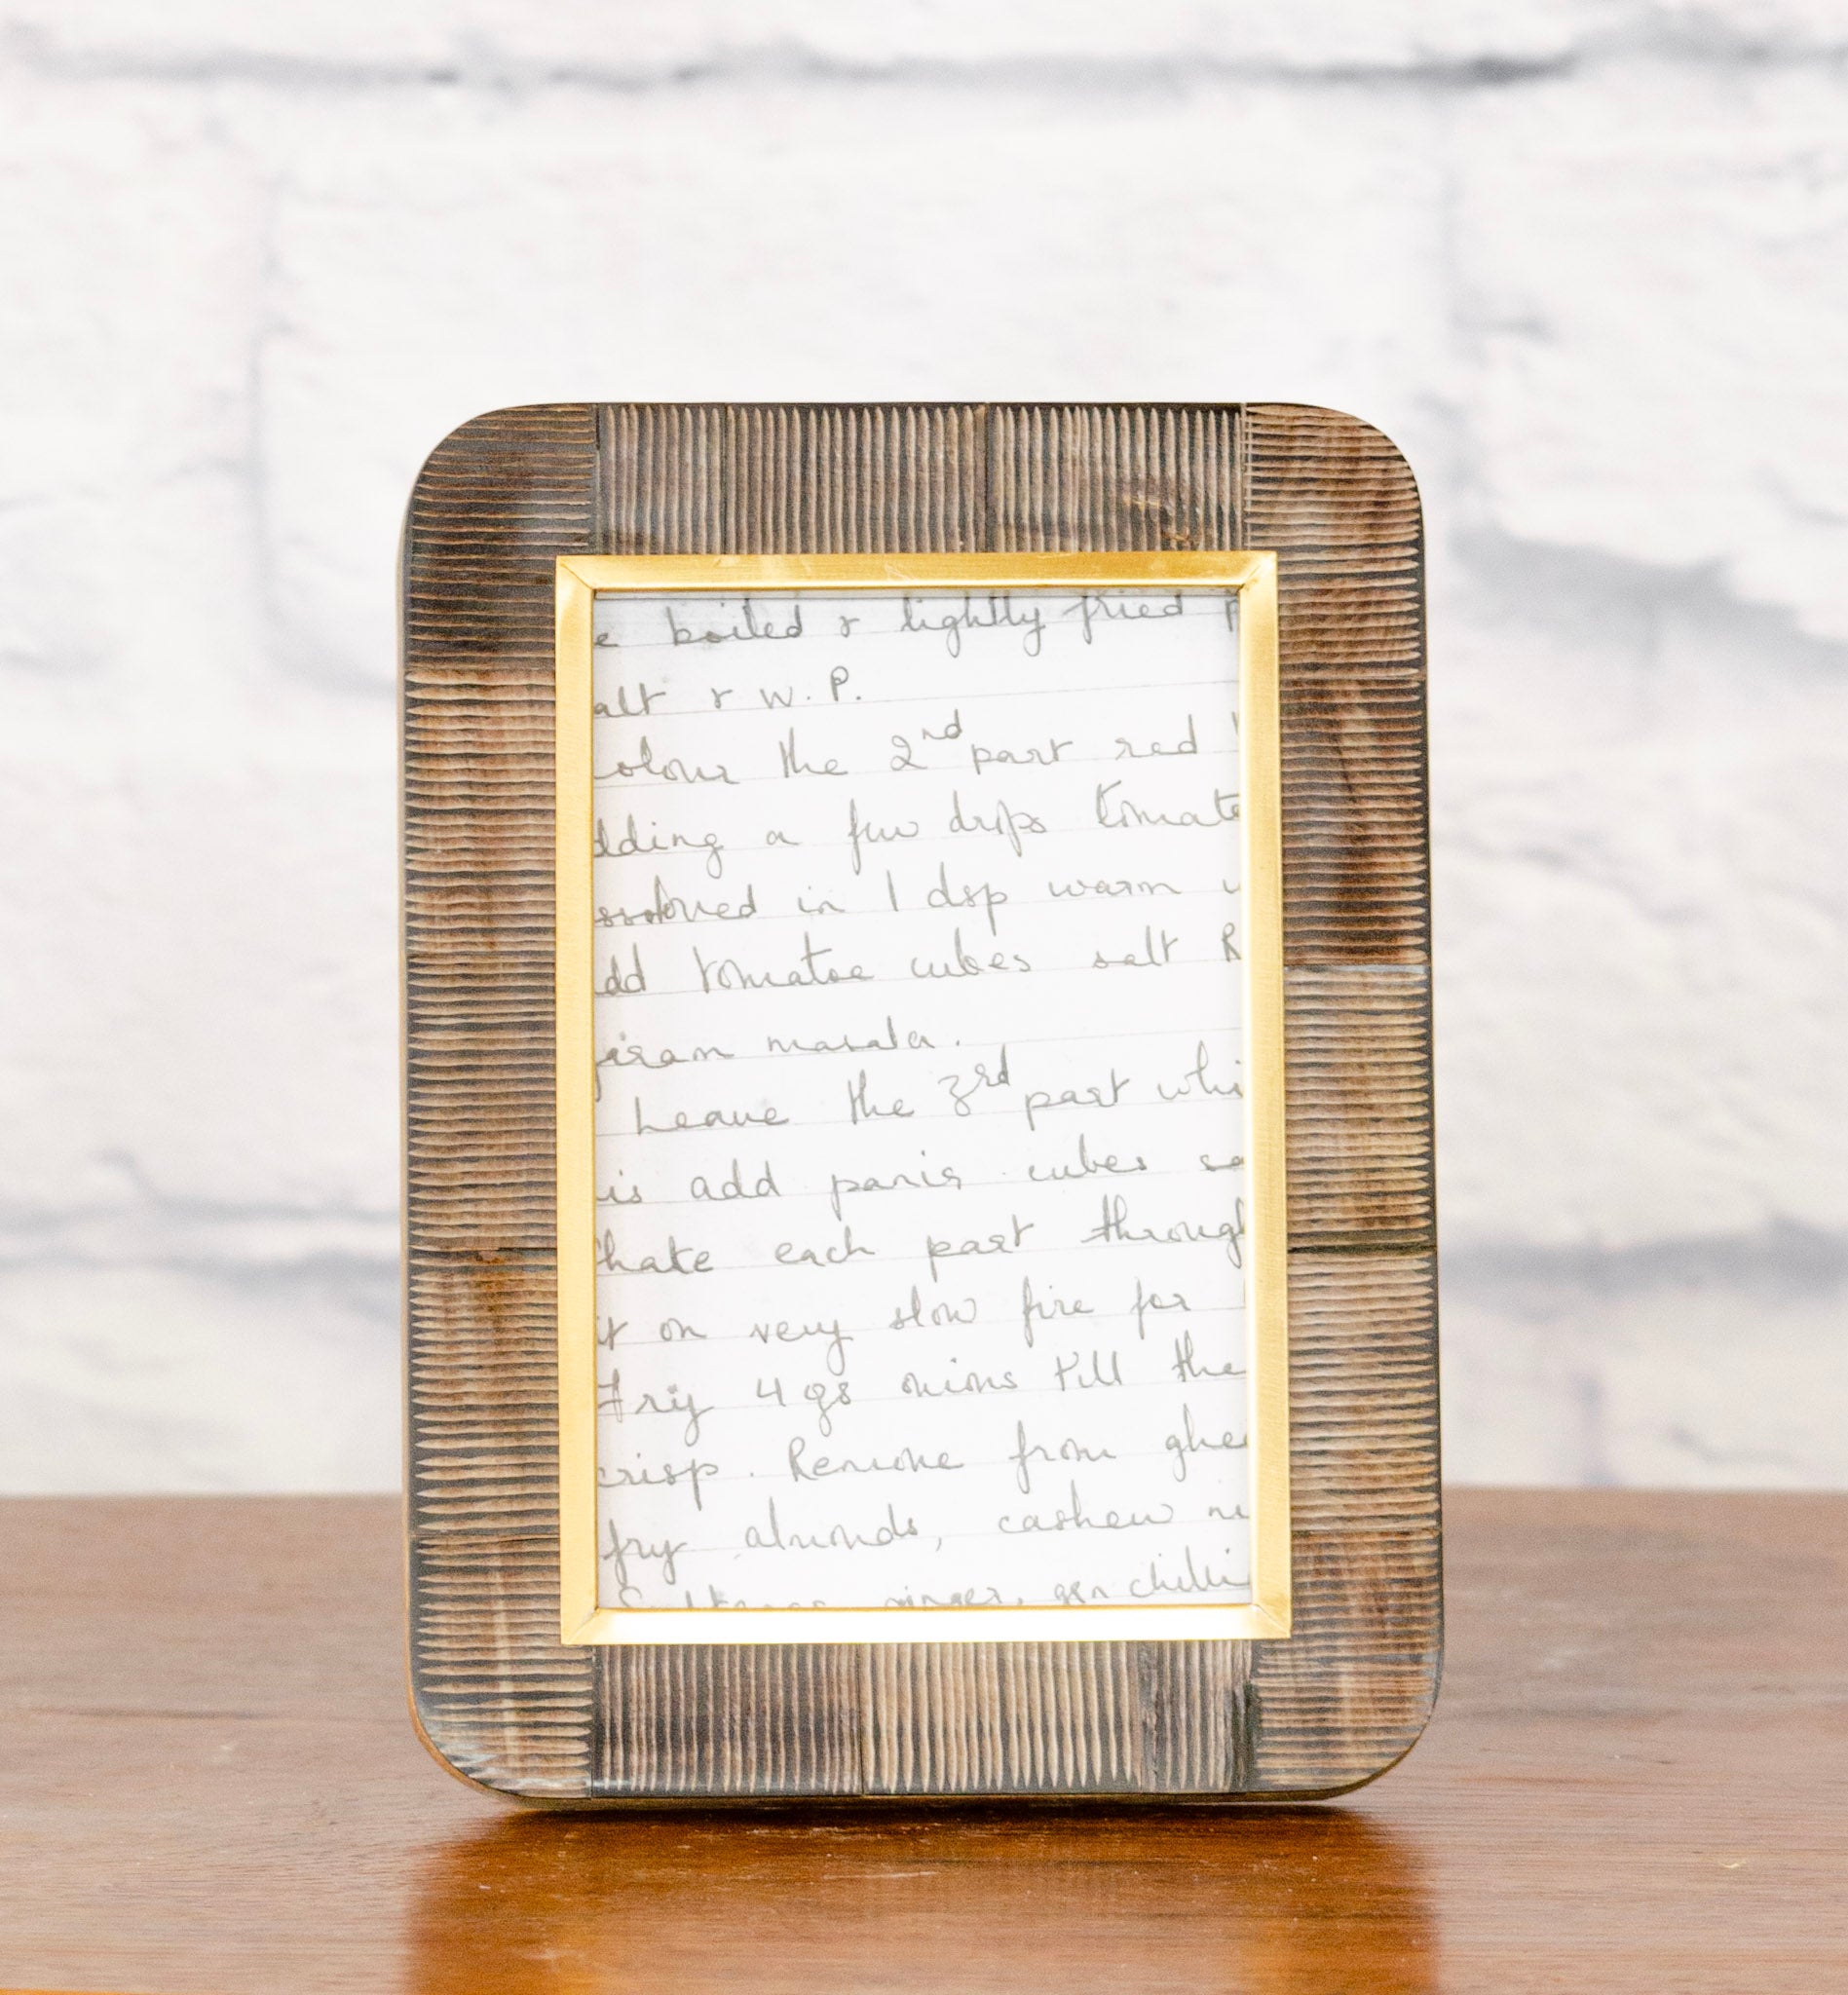 e boiled & lightly fried p
alt & W. P.
olour the 2nd part red
dding a few drips tomato
ssolved in 1 dsp warm w
dd tomatoe cubes salt R
jiran masala.
Leave the 3rd part whi
is add panir cubes sa
hake each part through
it on very slow fire for
Fry 4 gs onions till the
crisp. Remove from ghee
fry almonds, cashew nu
Sultanas ginger, grn chilli